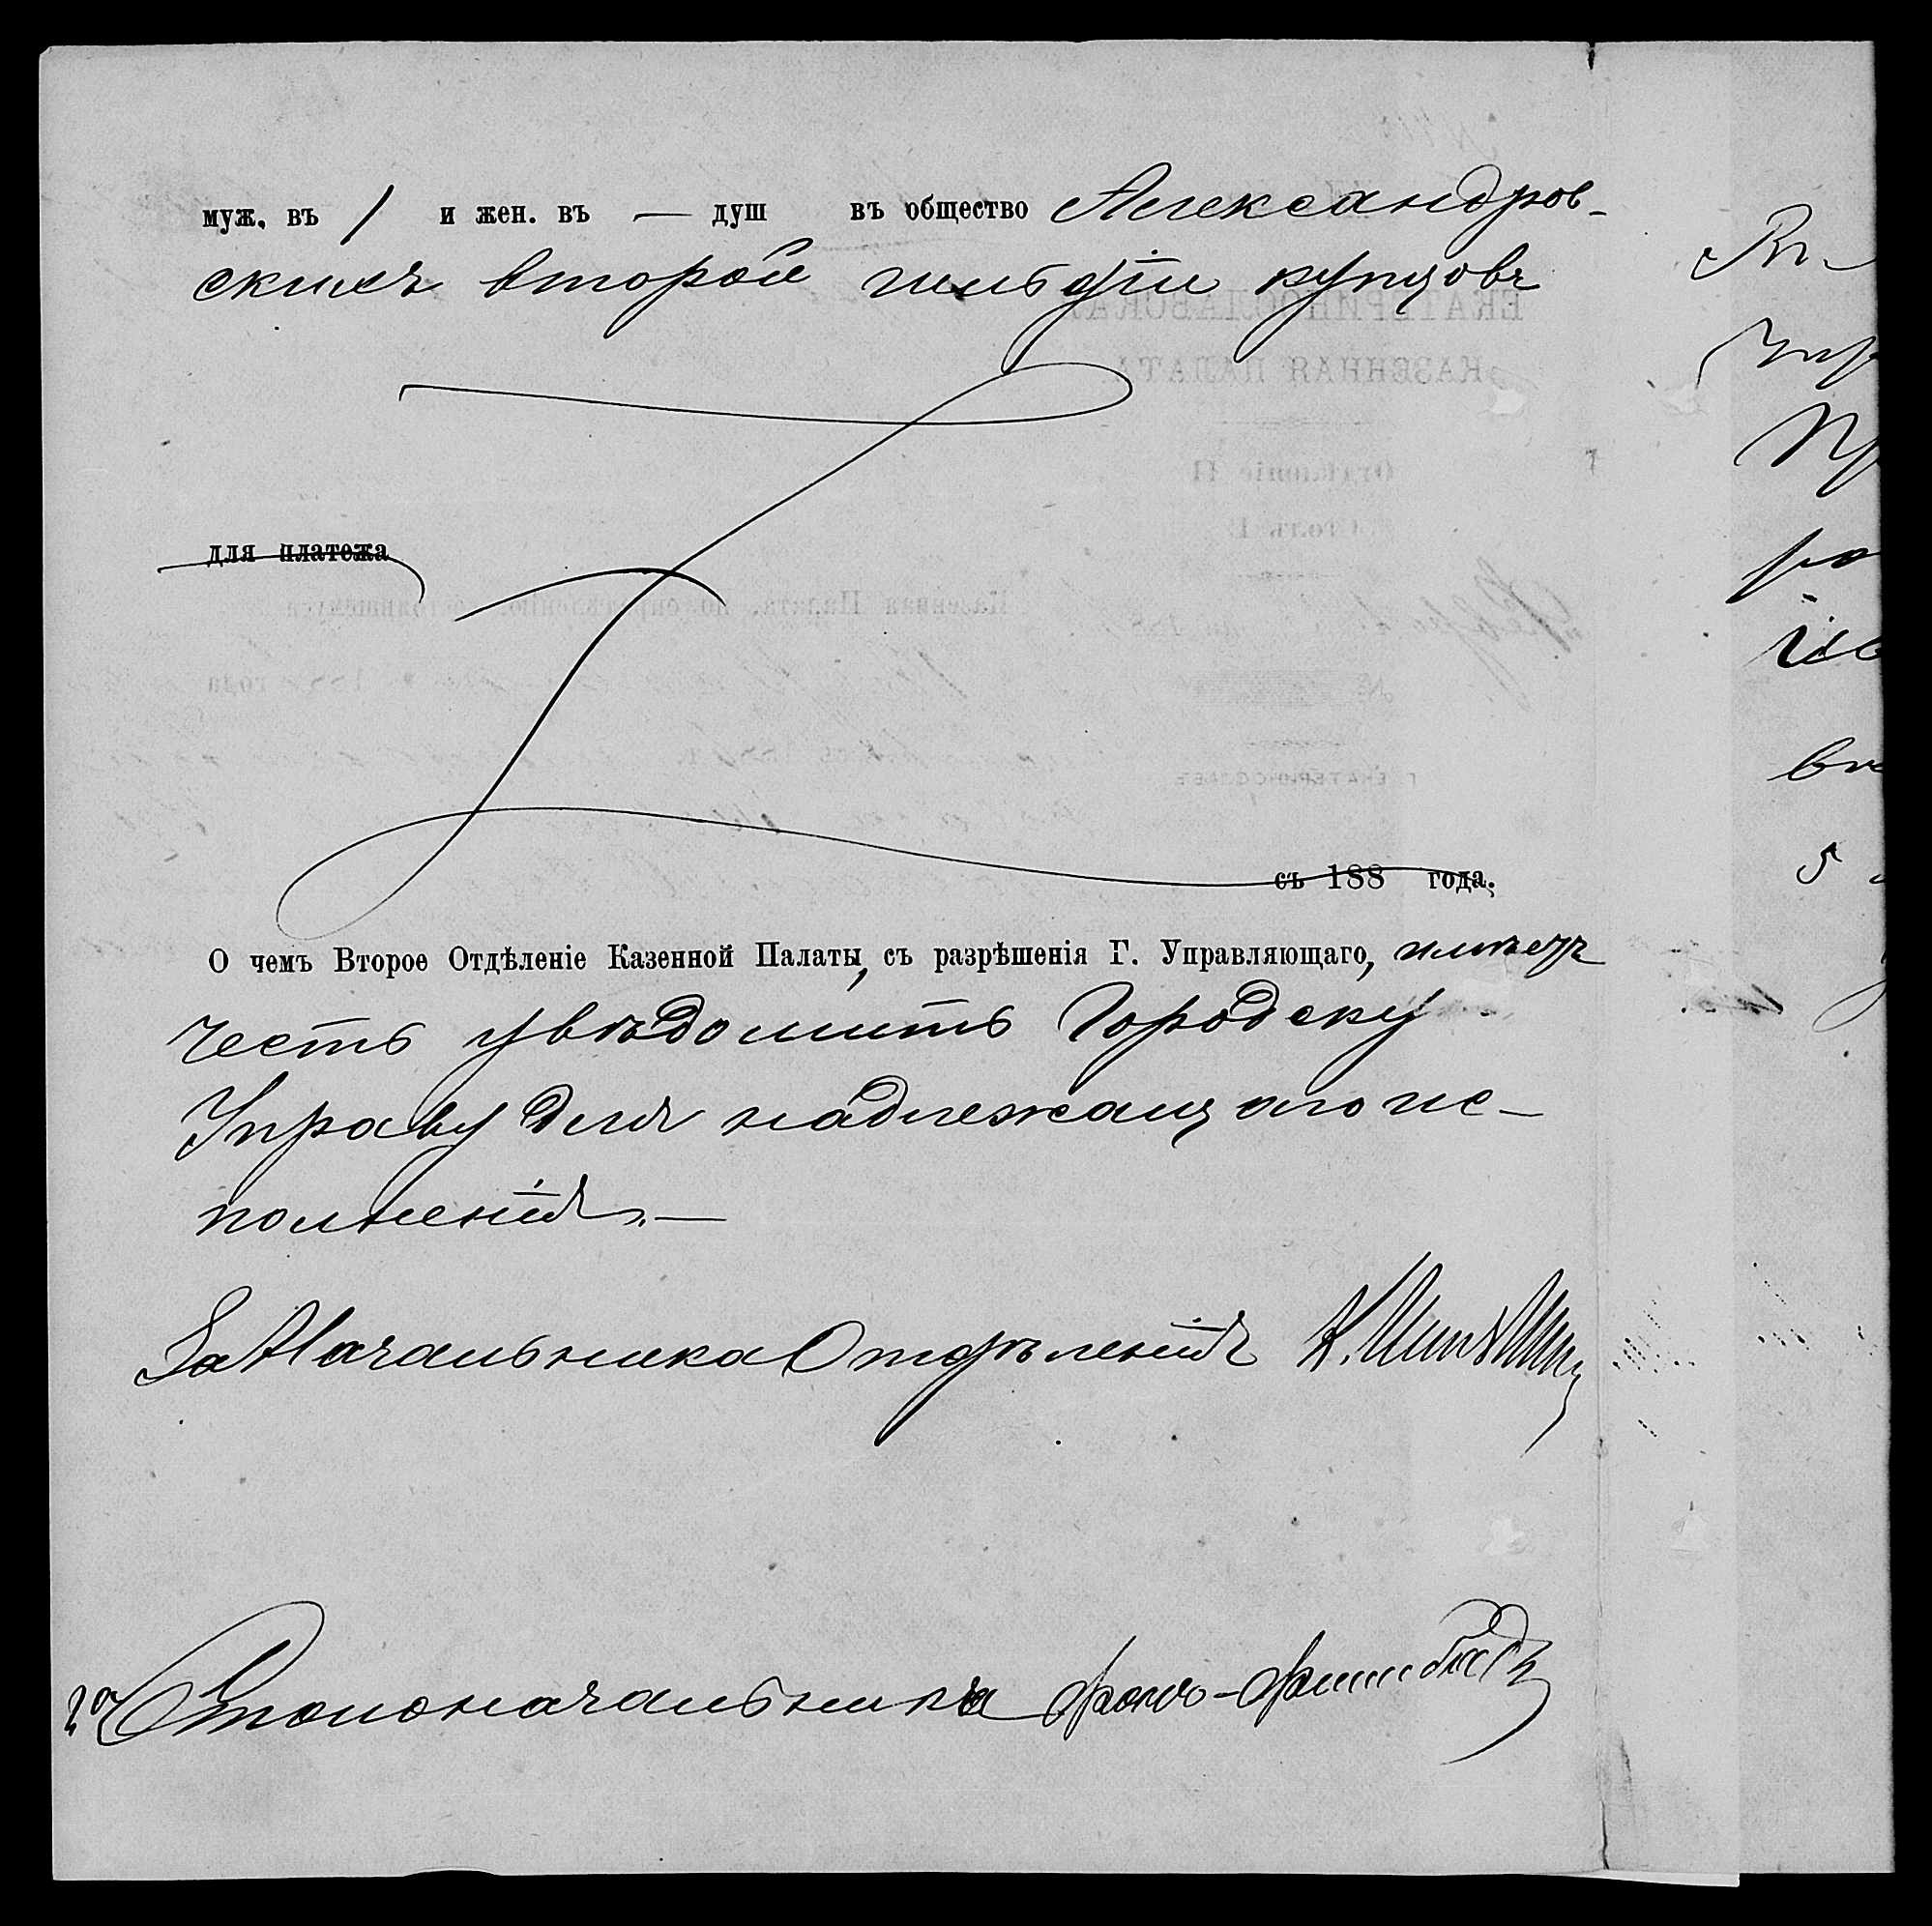 муж. въ 1 и жен. въ — душ въ общество Александров-
скихъ второй гильдіи купцовъ
для платежа
съ 188 года.
О чемъ Второе Отдѣленіе Казенной Палаты, съ разрѣшенія Г. Управляющаго, имѣетъ
честь увѣдомить Городску
Управу для надлежащаго ис-
полненія.—
За Начальника Отдѣленія К.
За Столоначальника